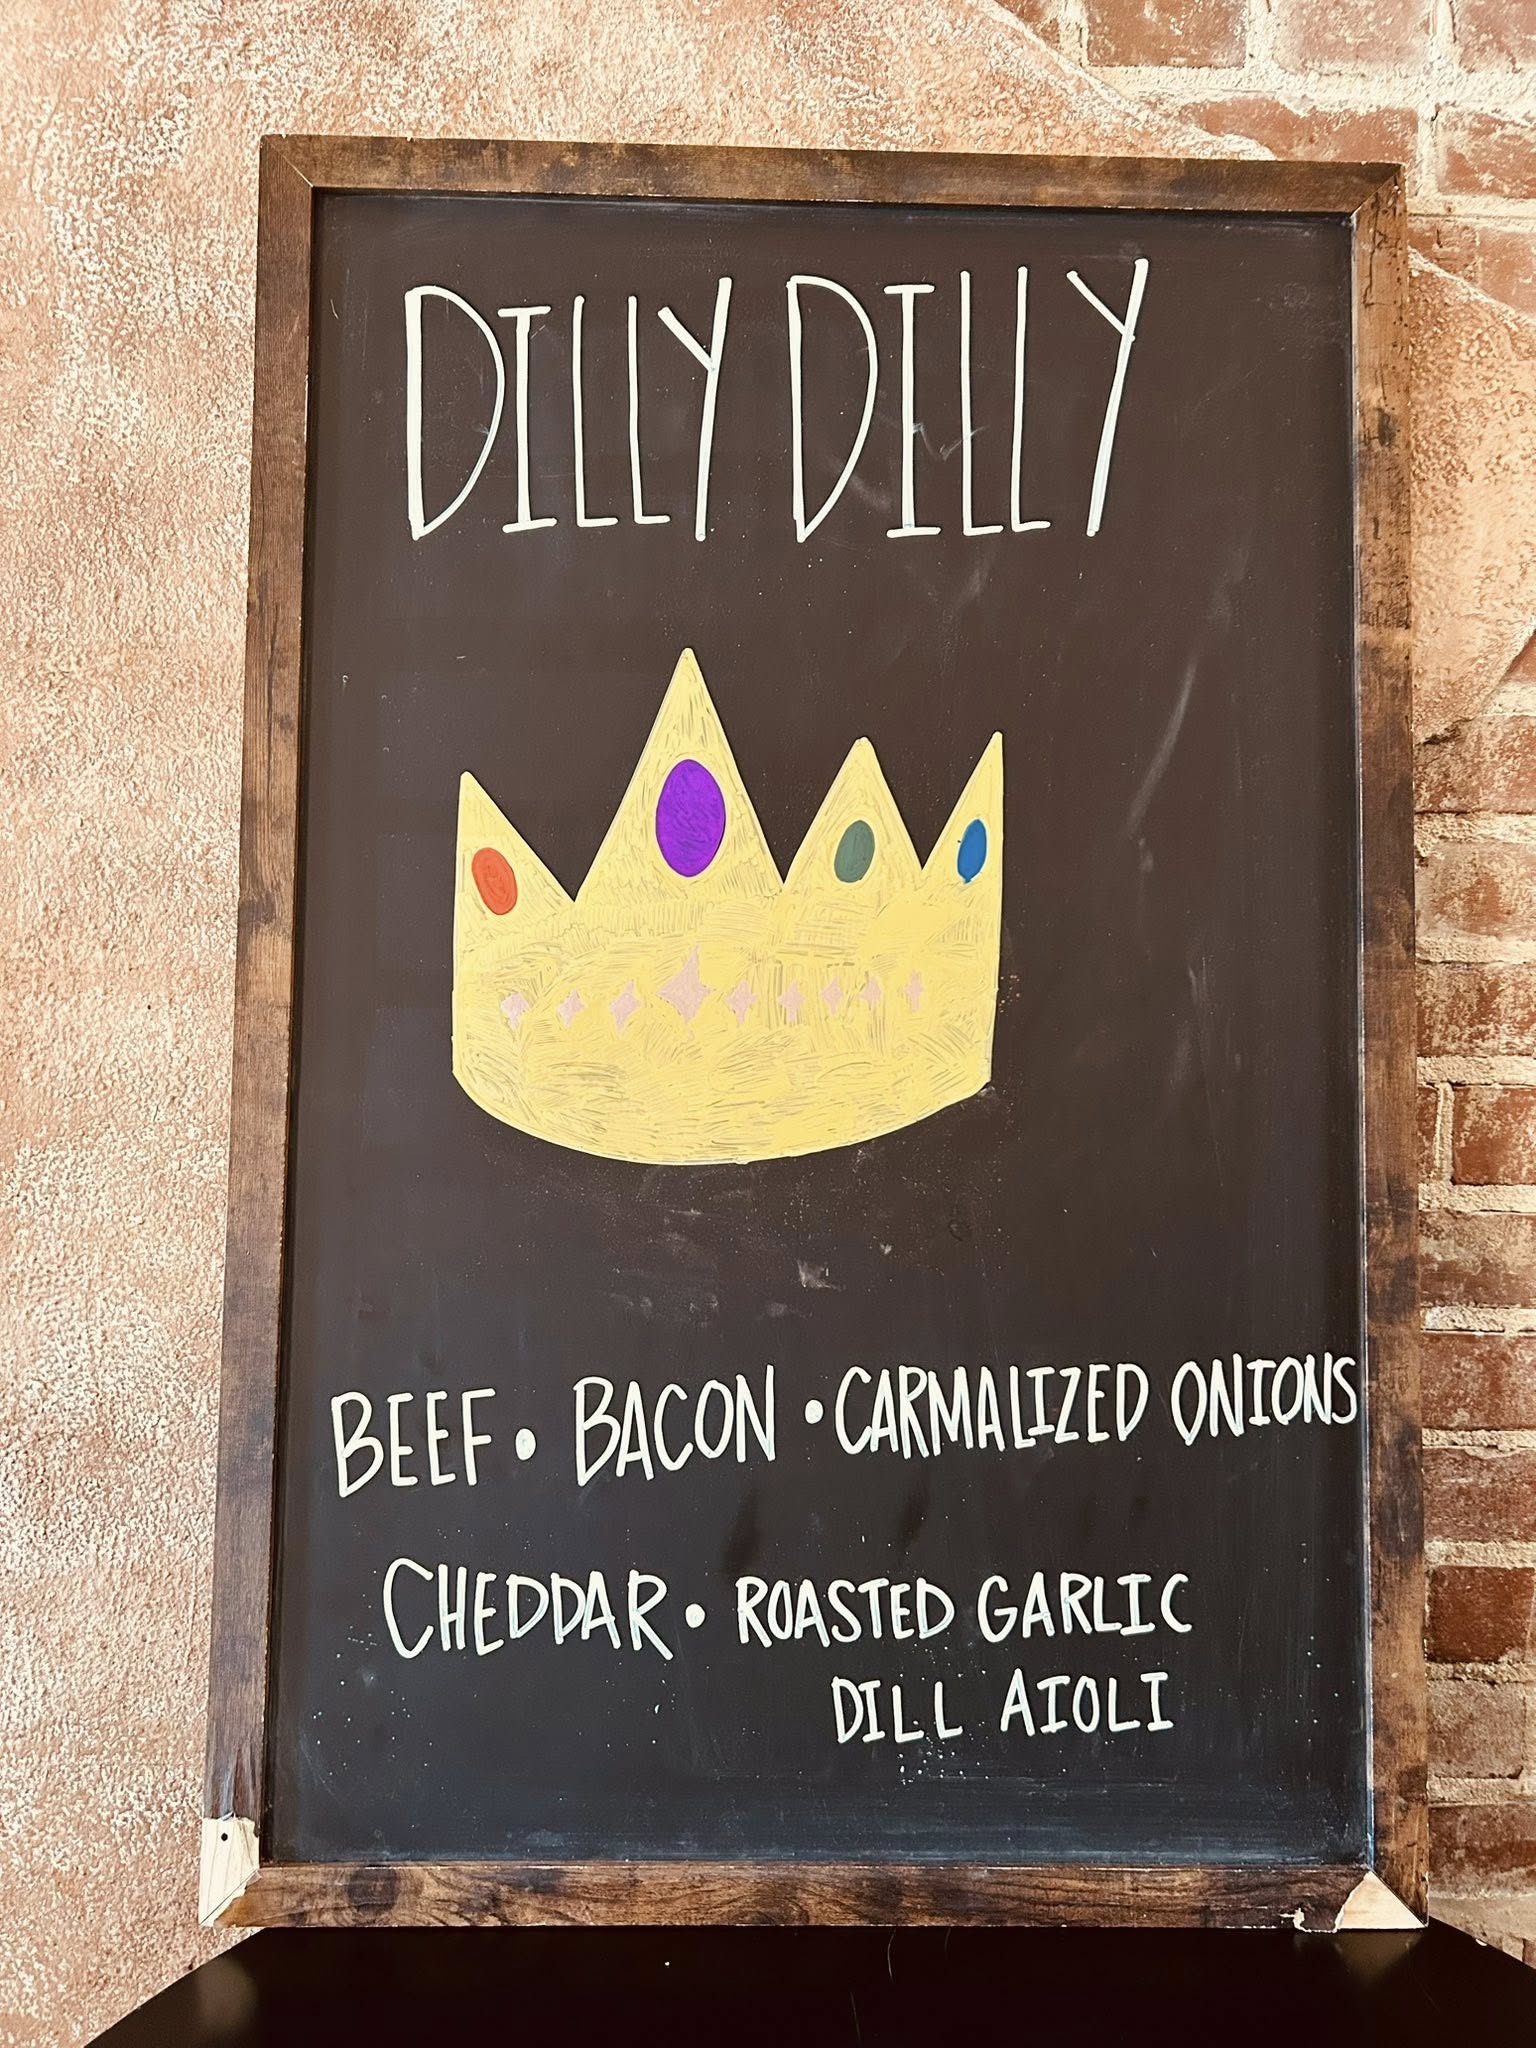 DILLY DILLY
BEEF • BACON • CARMALIZED ONIONS
CHEDDAR • ROASTED GARLIC
DILL AIOLI